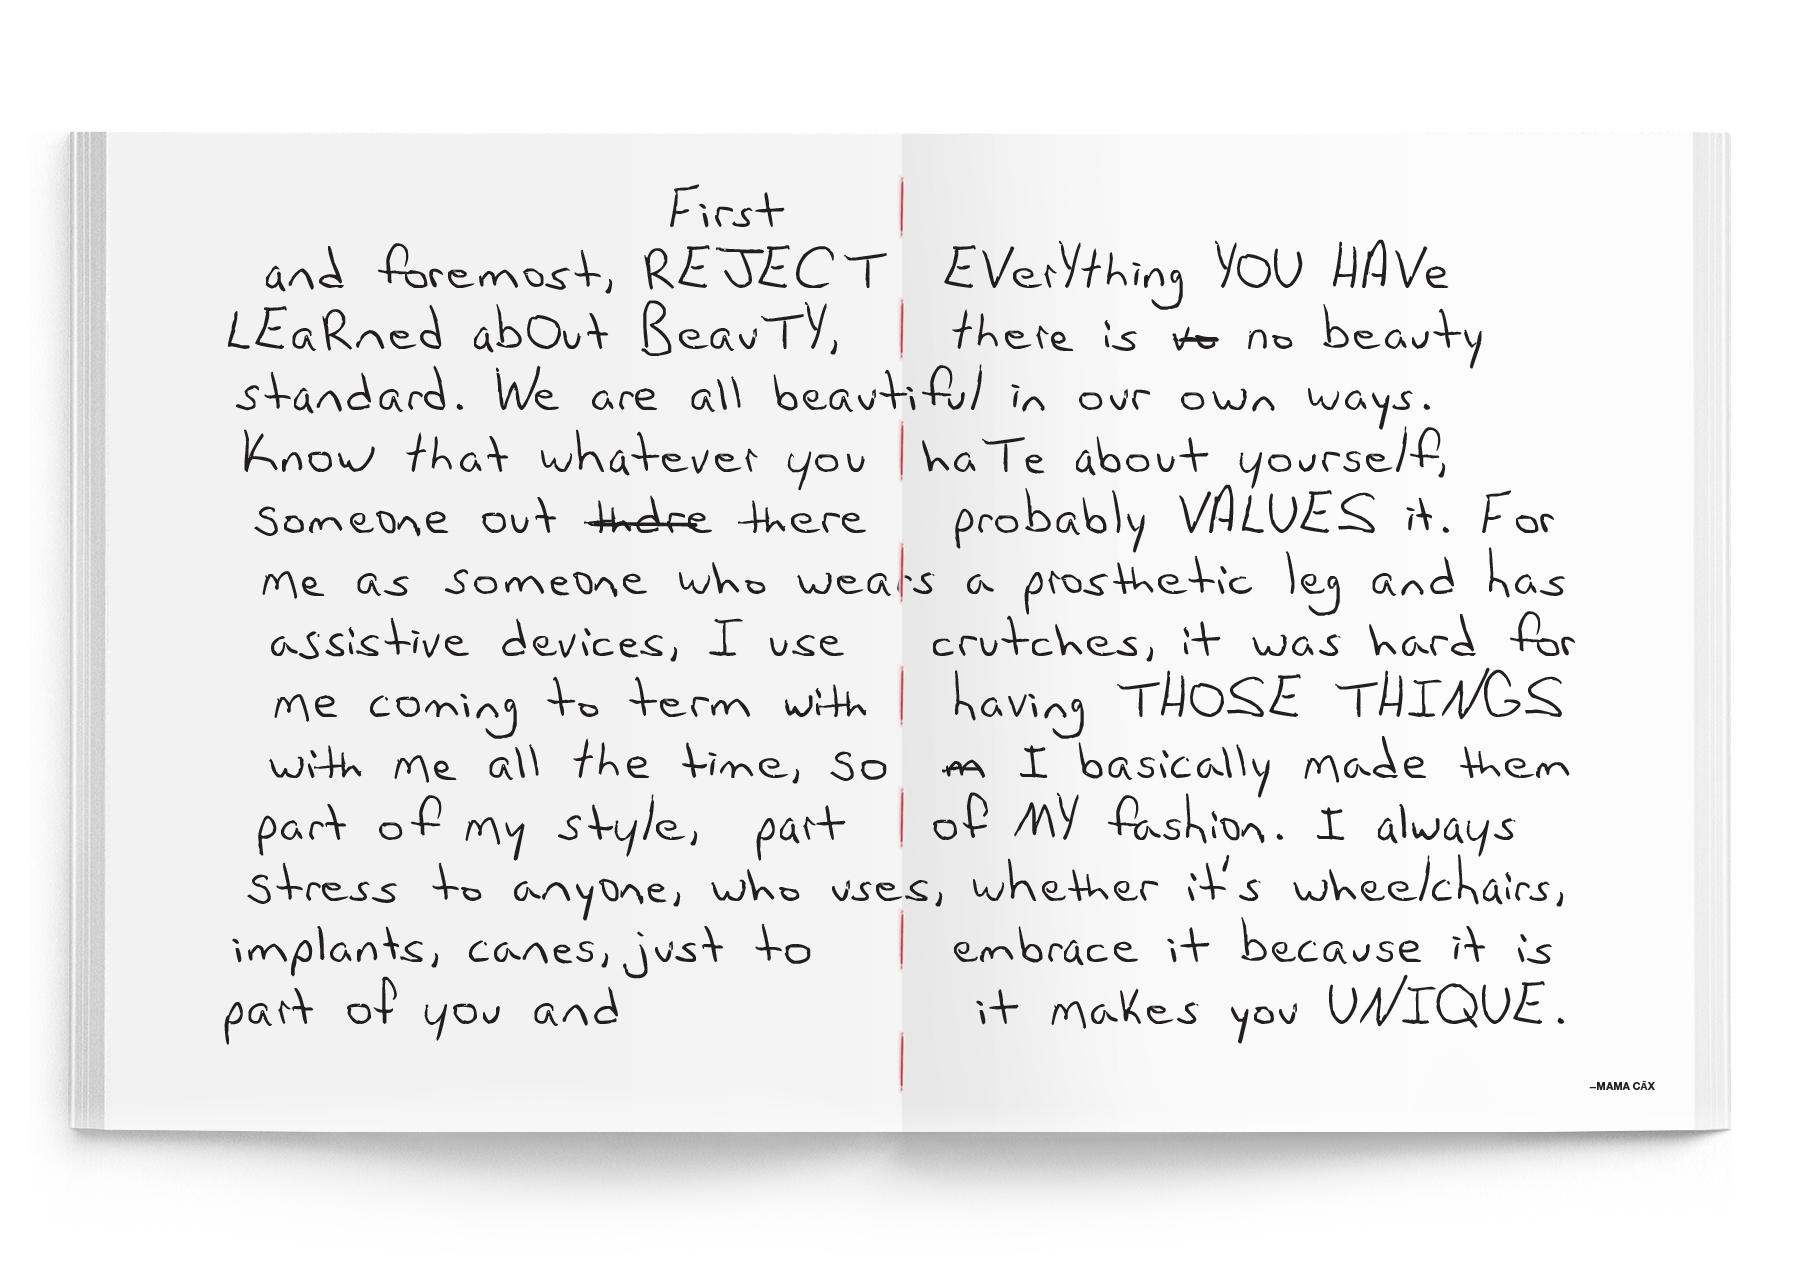 First
and foremost, REJECT EVerYthing YOU HAVe
LEaRned abOut BeauTY, there is vo no beauty
standard. We are all beautiful in our own ways.
Know that whatever you haTe about yourself,
someone out thdre there probably VALUES it. For
me as someone who wears a prosthetic leg and has
assistive devices, I use crutches, it was hard for
me coming to term with having THOSE THINGS
with me all the time, so m I basically made them
part of my style, part of MY fashion. I always
stress to anyone, who uses, whether it's wheelchairs,
implants, canes, just to embrace it because it is
part of you and it makes you UNIQUE.
–MAMA CĀX